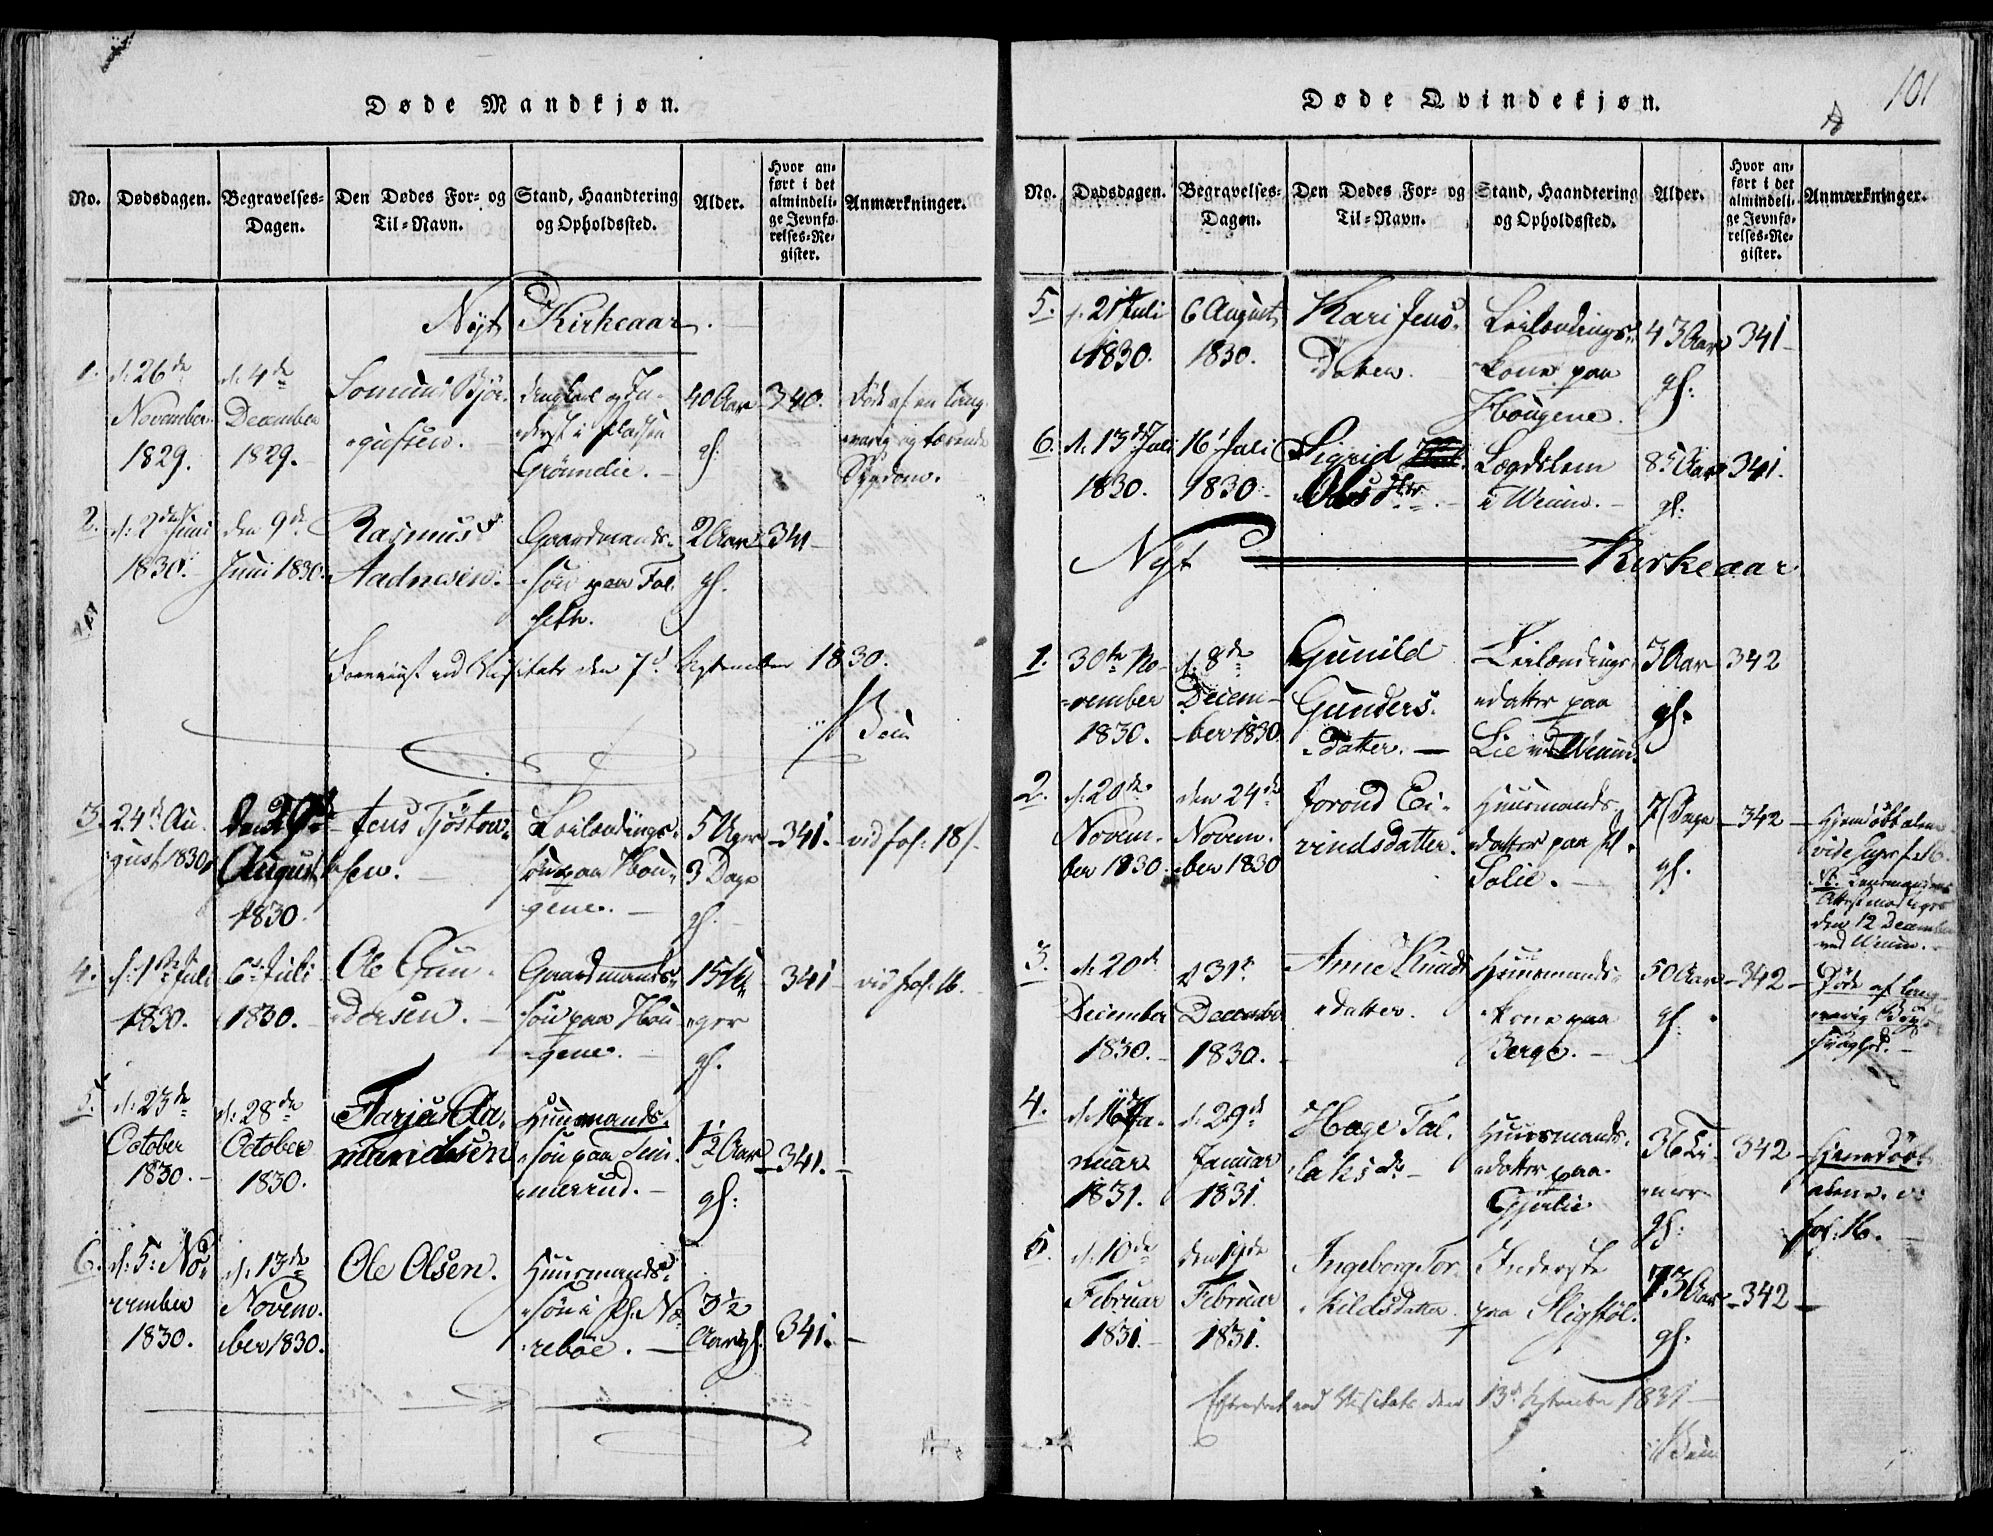 Døde Mandkjøn.
No.
Dødsdagen.
Begravelses-
Dagen.
Den Dødes For- og
Til-Navn.
Stand, Haandtering
og Opholdssted.
Alder.
Hvor an-
ført i det
almindeli-
ge Jevnfø-
relses-Re-
gister.
Anmærkninger.
Nyt Kirkeaar.
1.
d. 26de
November
1829.
d. 4de
December
1829.
Grønnlie.
40 Aar
gl:
340.
Død af en lang-
varig og tærende
Sygdom.
2.
d. 2den Juni
1830.
den 9de
Juni 1830.
Rasmus
Aadnesen.
Gaardmands-
søn paa Fol-
seth.
2 Aar
gl.
341
Foreviist ved Visitats den 7d September 1830.
3.
24de Au-
gust 1830
den 29de
August
1830.
Jens Tjøstou-
sen.
Leilændings-
søn paa Hou-
gene.
5 Uger
3 Dage
gl.
341.
vid fol: 18
4.
d. 1ste Juli
1830.
6te Juli
1830.
Ole Gun-
dersen.
Gaardmands-
søn paa Hou-
gene.
15 U-
ger
gl.
341
vid fol: 16.
5.
d. 23de
October
1830.
d. 28de
October
1830.
Tarje Aa-
mundsen
Huusmands-
søn paa
1½ Aar
gl:
341.
6.
d. 5: No-
vember
1830.
d. 13de
Novem-
ber 1830.
Ole Olsen.
Huusmands-
søn i
3½
Aar gl.
341.
101
Døde Qvindekjøn.
No.
Dødsdagen.
Begravelses-
Dagen.
Den Dødes For- og
Til-Navn.
Stand, Haandtering
og Opholdssted.
Alder.
Hvor an-
ført i det
almindeli-
ge Jevnfø-
relses-Re-
gister.
Anmærkninger.
5.
d. 21 Juli
1830.
6 August
1830.
Kari Jens-
Datter.
Leilændings-
Kone paa
Hougene.
43 Aar
gl:
341
6.
d. 13de Juli
1830.
16 Juli
1830.
Sigrid
Olsdtr.
Lægdslem
i
Aar
gl:
341.
Nyt Kirkeaar
1.
30te No-
vember
1830.
d. 8de
Decem-
ber 1830.
Gunild
Gunders-
datter.
Leilændings-
datter paa
Lie
3 Aar
gl.
342
2.
d. 20de
Novem-
ber 1830.
den 24de
Novem-
ber 1830
Jorond Ei-
vindsdatter.
Huusmands-
datter paa
Solie.
7 Dage
gl.
342
Hjemdøbt
den 12 December
3.
d. 20de
December
1830.
d 31te
December
1830.
Anne Knuds-
datter.
Huusmands-
kone paa
Berge.
50 Aar
gl.
342
Døde af lang-
varig Bryst-
svaghed.
4.
d. 16 Ja-
nuar
1831.
d. 29d
Januar
1831.
Hage Tal-
laksdtr
Huusmands-
datter paa
Gjerlie
36 Ti-
mer
gl:
342
Hjemdøbt
fol: 16.
5.
d. 10de
Februar
1831.
Februar
1831.
Ingeborg Tor-
kildsdatter.
Inderste
paa Sligstøl.
73 Aar
gl.
342
ved Visitats den 13d September 1831